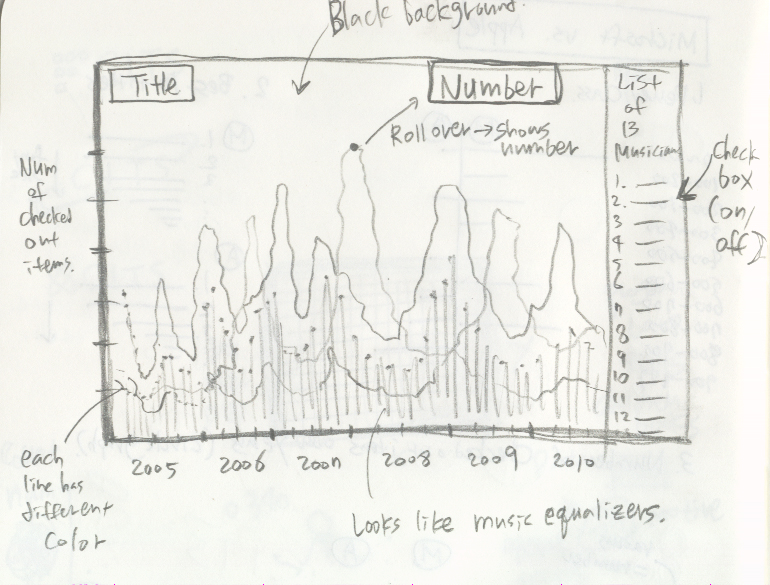 Black background.
Title
Number
Roll over → shows
number
List
of
13
Musician
Num
of
checked
out
items.
check
box
(on/
off)
1.
2.
3
4
5
6
7
8
9
10
11
12
2005 2006 2007 2008 2009 2010
each
line has
different
color
Looks like music equalizers.
Microsoft vs. Apple